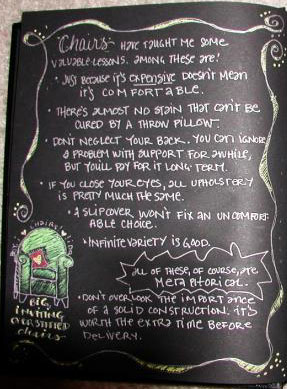 "Chairs" HAVE TAUGHT ME SOME
VALUABLE LESSONS. AMONG THESE ARE:
• JUST BECAUSE IT'S EXPENSIVE DOESN'T MEAN
IT'S COMFORTABLE.
• THERE'S ALMOST NO STAIN THAT CAN'T BE
CURED BY A THROW PILLOW.
• DON'T NEGLECT YOUR BACK. YOU CAN IGNORE
A PROBLEM WITH SUPPORT FOR AWHILE,
BUT YOU'LL PAY FOR IT LONG-TERM.
• IF YOU CLOSE YOUR EYES, ALL UPHOLSTERY
IS PRETTY MUCH THE SAME.
• A SLIPCOVER WON'T FIX AN UNCOMFORT-
ABLE CHOICE.
• INFINITE VARIETY IS GOOD.
ALL OF THESE, OF COURSE, ARE
METAPHORICAL.
• DON'T OVERLOOK THE IMPORTANCE
OF A SOLID CONSTRUCTION. IT'S
WORTH THE EXTRA TIME BEFORE
DELIVERY.
BIG,
INVITING
OVERSTUFFED
chairs